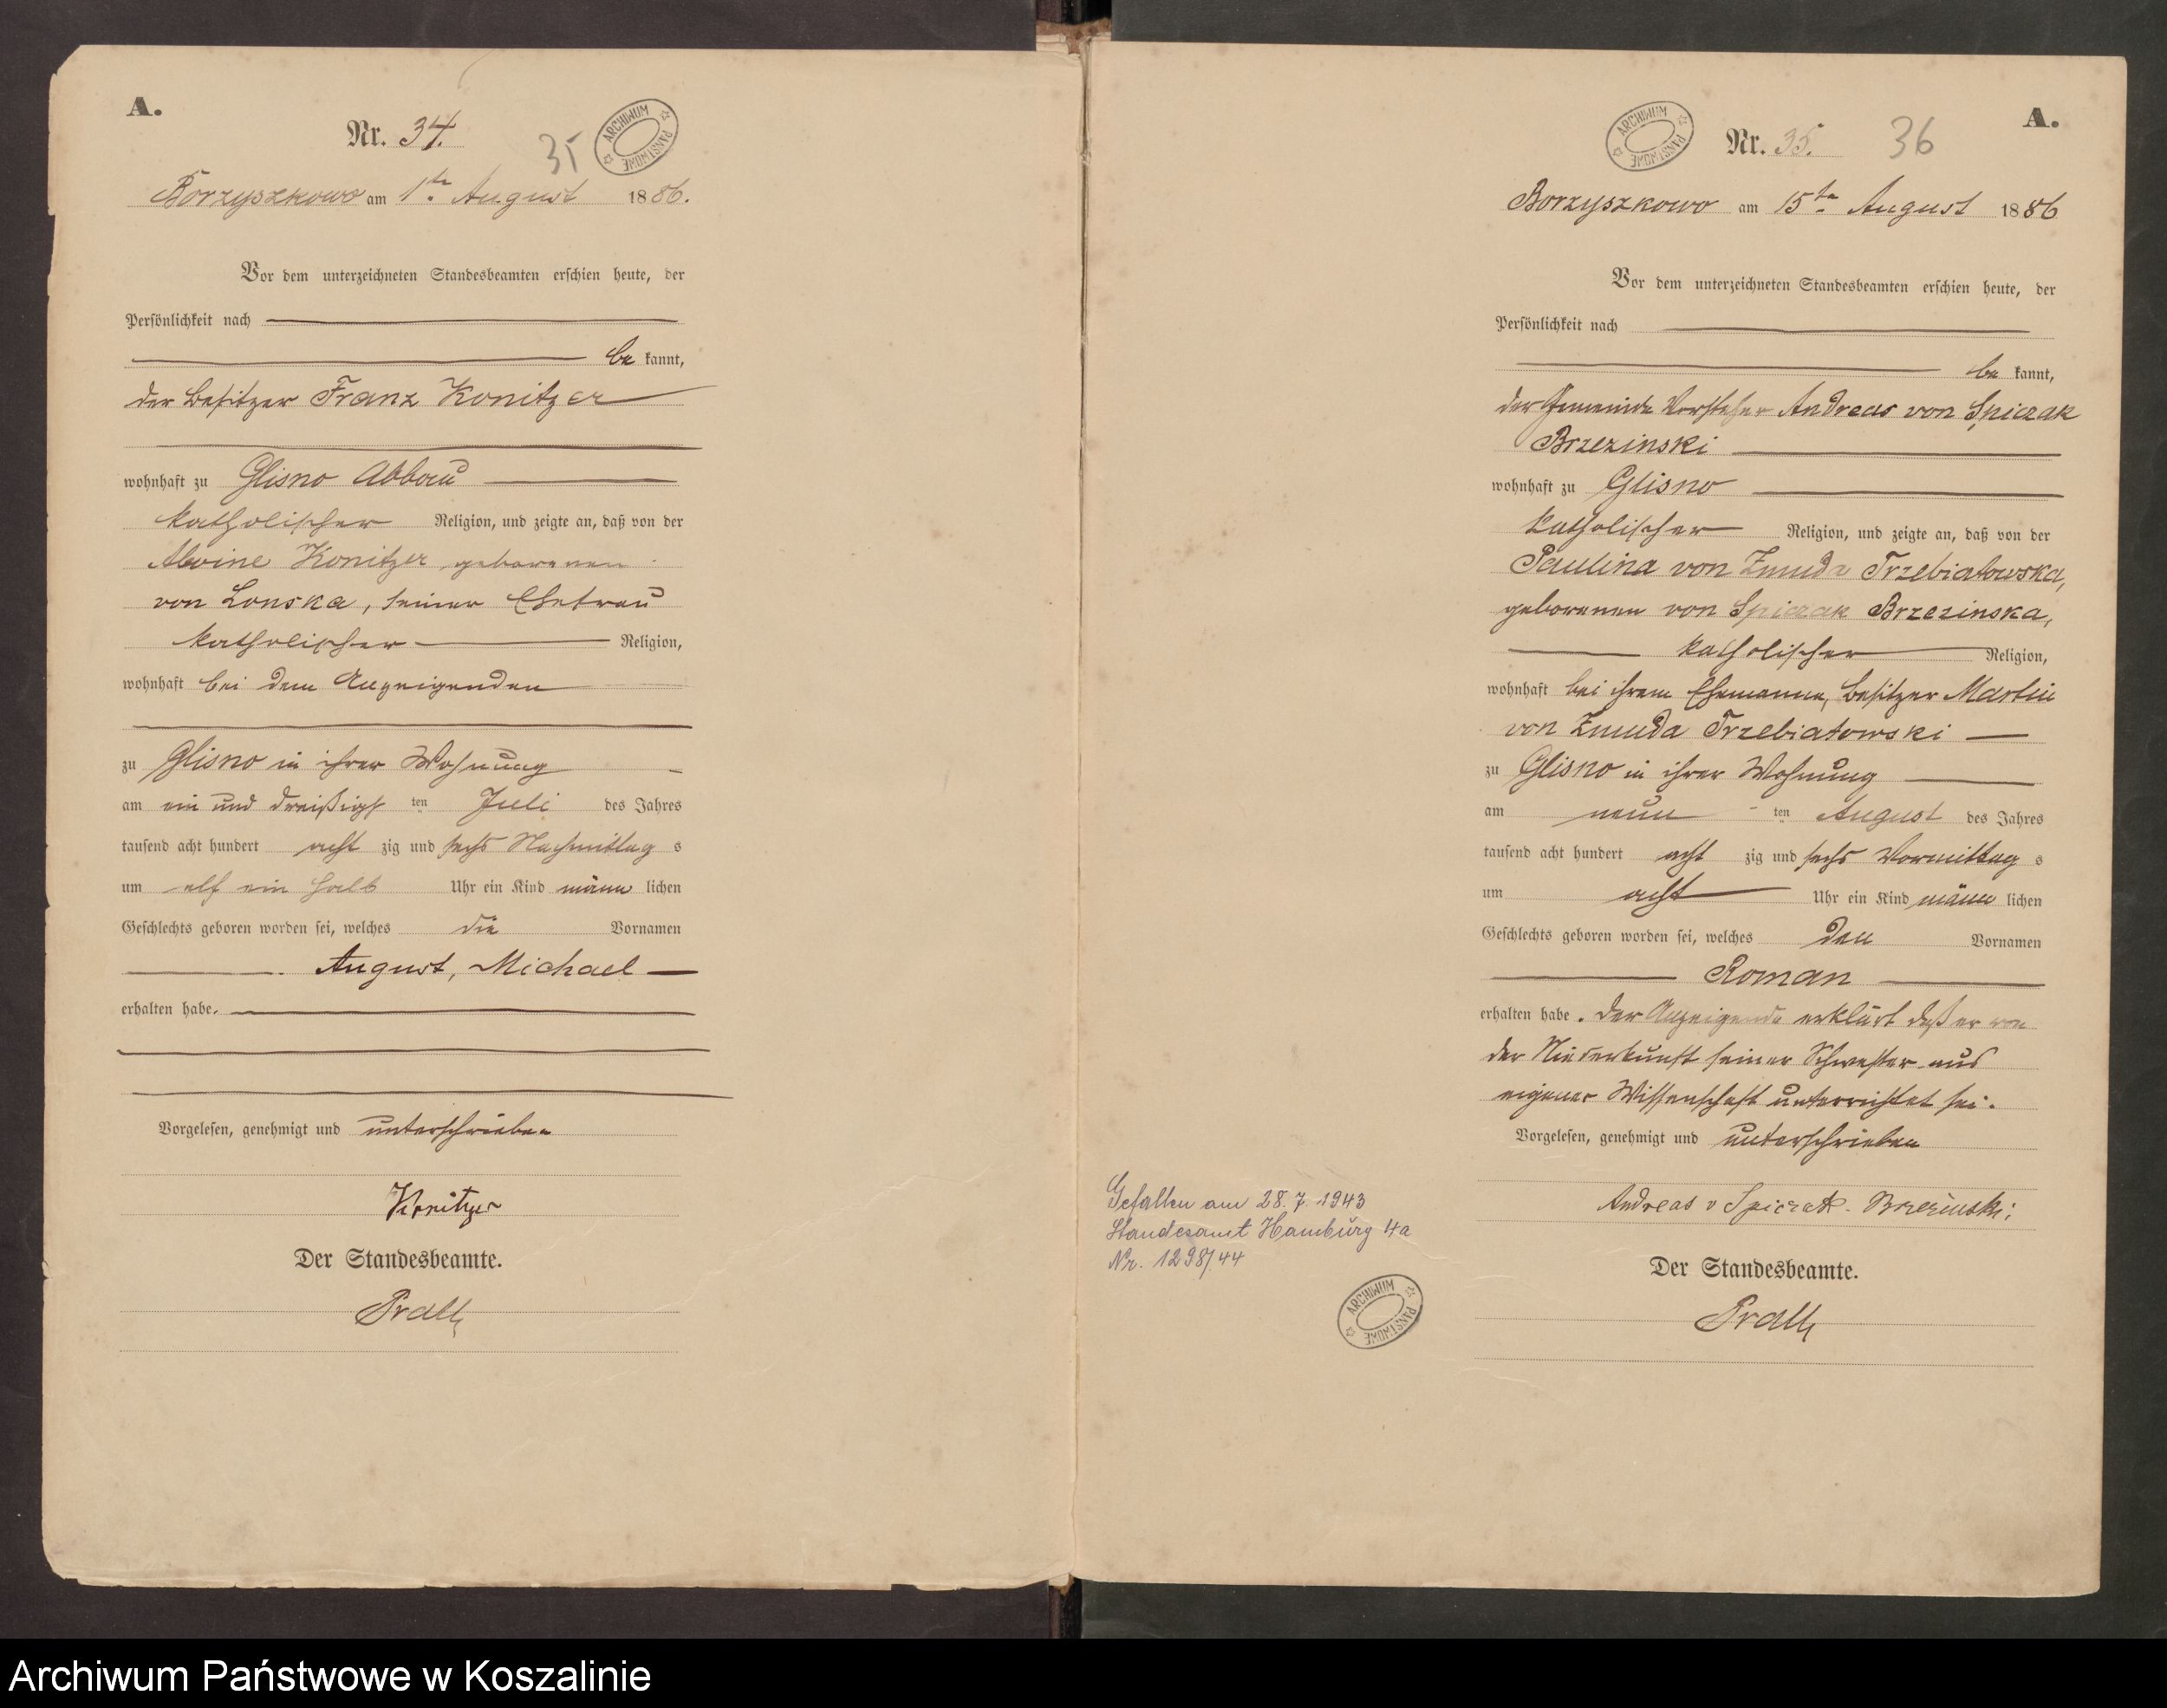 A.
Nr. 34.
35
ARCHIWUM PAŃSTWOWE
Borzyszkowo am 1ten August 1886.
Vor dem unterzeichneten Standesbeamten erschien heute, der
Persönlichkeit nach
be kannt,
der Besitzer Franz Konitzer
wohnhaft zu Glisno Abbau
katholischer Religion, und zeigte an, daß von der
Alwine Konitzer geborenen
von Lonska, seiner Ehefrau
katholischer Religion,
wohnhaft bei dem Anzeigenden
zu Glisno in ihrer Wohnung
am ein und dreißigs ten Juli des Jahres
tausend acht hundert acht zig und sechs Nachmittag s
um elf ein halb Uhr ein Kind männ lichen
Geschlechts geboren worden sei, welches die Vornamen
August, Michael
erhalten habe.
Vorgelesen, genehmigt und unterschrieben
Konitzer
Der Standesbeamte.
ARCHIWUM PAŃSTWOWE
Nr. 35.
36
A.
Borzyszkowo am 15ten August 1886
Vor dem unterzeichneten Standesbeamten erschien heute, der
Persönlichkeit nach
be kannt,
der Gemeinde Vorsteher Andreas von Spiczak
Brzezinski
wohnhaft zu Glisno
katholischer Religion, und zeigte an, daß von der
Paulina von Zmuda Trzebiatowska,
geborenen von Spiczak Brzezinska,
katholischer Religion,
wohnhaft bei ihrem Ehemanne, Besitzer Martin
von Zmuda Trzebiatowski
zu Glisno in ihrer Wohnung
am neun ten August des Jahres
tausend acht hundert acht zig und sechs Vormittag s
um acht Uhr ein Kind männ lichen
Geschlechts geboren worden sei, welches den Vornamen
Roman
erhalten habe. Der Anzeigende erklärt daß er von
der Niederkunft seiner Schwester aus
eigener Wissenschaft unterrichtet sei.
Vorgelesen, genehmigt und unterschrieben
Andreas v Spiczak-Brzezinski
Der Standesbeamte.
Gefallen am 28.7.1943
Standesamt Hamburg 4a
Nr. 1298/44
ARCHIWUM PAŃSTWOWE
Archiwum Państwowe w Koszalinie